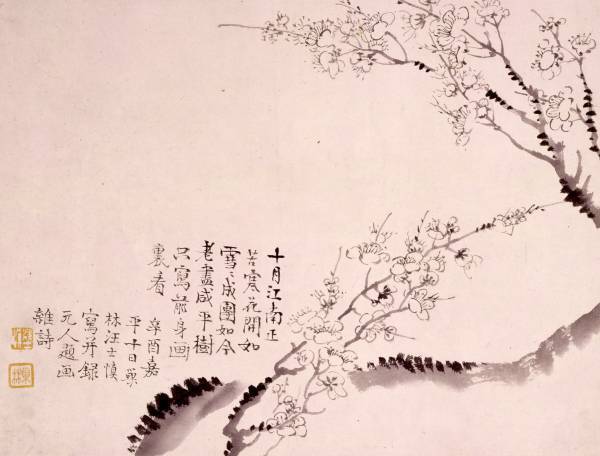 十月江南正
苦寒花開如
雪〻成團如今
老盡咸平樹
只寫前身画
裏看
辛酉嘉
平十日巢
林汪士慎
寫并録
元人題画
雜詩